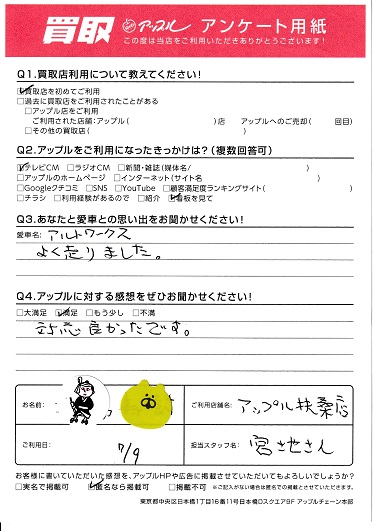 買取 アップル アンケート用紙
この度は当店をご利用いただきありがとうございます!
Q1.買取店利用について教えてください!
☑買取店を初めてご利用
□過去に買取店をご利用されたことがある
□アップル店をご利用
ご利用された店舗:アップル( )店 アップルへのご売却( 回目)
□その他の買取店( )
Q2.アップルをご利用になったきっかけは?(複数回答可)
☑テレビCM □ラジオCM □新聞・雑誌(媒体名/ )
□アップルのホームページ □インターネット(サイト名 )
□Googleクチコミ □SNS □YouTube □顧客満足度ランキングサイト( )
□チラシ □利用経験があるので □紹介 ☑看板を見て
Q3.あなたと愛車との思い出をお聞かせください!
愛車名: アルトワークス
よく走りました。
Q4.アップルに対する感想をぜひお聞かせください!
□大満足 ☑満足 □もう少し □不満
対応良かったです。
お名前:
ご利用店舗名: アップル扶桑店
ご利用日: 7/9
担当スタッフ名: 宮地さん
お客様に書いていただいた感想を、アップルHPや広告に掲載させていただいてもよろしいでしょうか?
□実名で掲載可 ☑匿名なら掲載可 □掲載不可
※ご記入がない場合は匿名での掲載とさせていただきます。
東京都中央区日本橋1丁目16番11号日本橋Dスクエア9F アップルチェーン本部